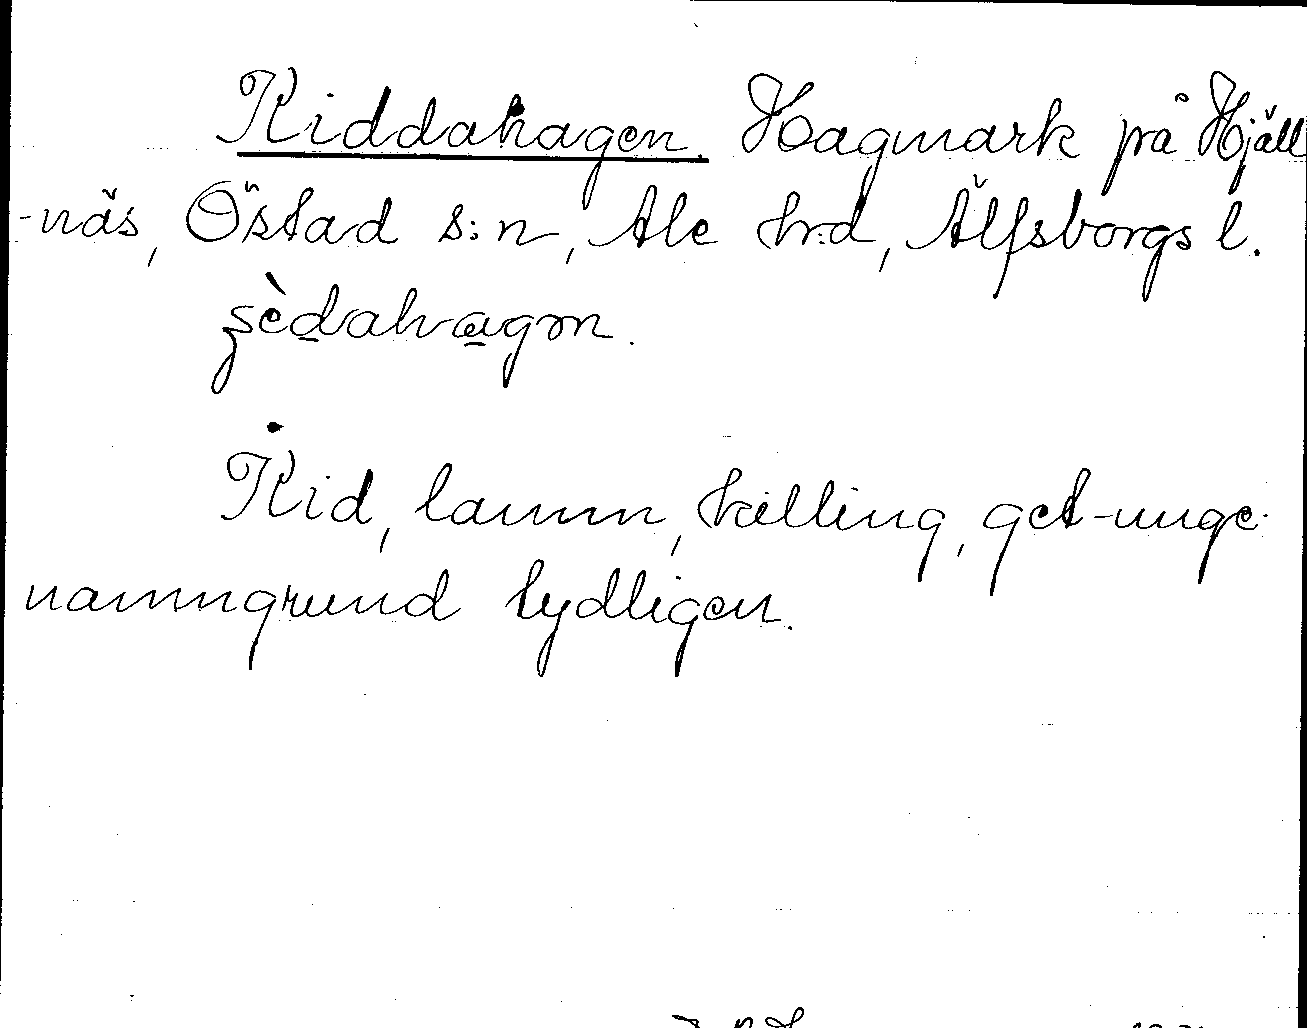 Kiddahagen. Hagmark på Hjäll
-näs, Östad s:n, Ale hrd, Älfsborgs l.
Kid, lamm, killing, get-unge.
namngrund tydligen.